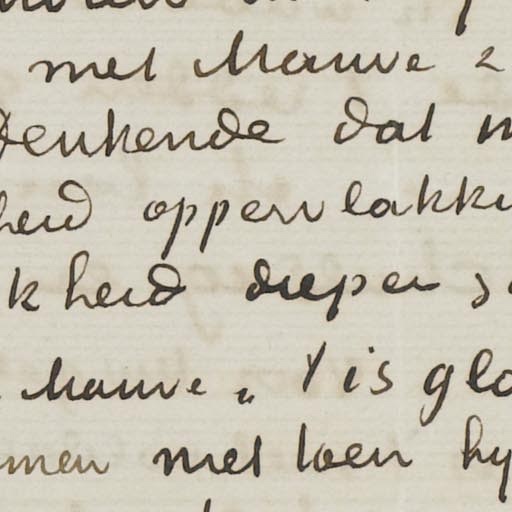 met Mauve &
Denkende dat
heid oppervlakki
kheid dieper
Mauve „ 't is glo
men met toen hy